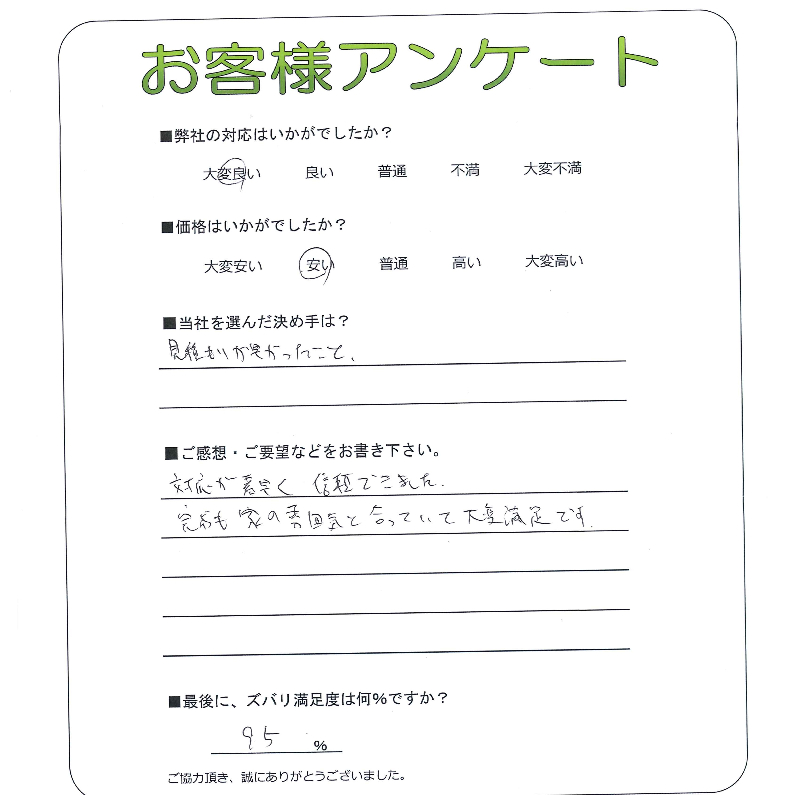 お客様アンケート
■弊社の対応はいかがでしたか？
大変良い 良い 普通 不満 大変不満
■価格はいかがでしたか？
大変安い 安い 普通 高い 大変高い
■当社を選んだ決め手は？
見積もりが安かったこと、
■ご感想・ご要望などをお書き下さい。
対応が素早く 信頼できました.
完成も 家の雰囲気と合っていて大変満足です.
■最後に、ズバリ満足度は何%ですか？
95 %
ご協力頂き、誠にありがとうございました。